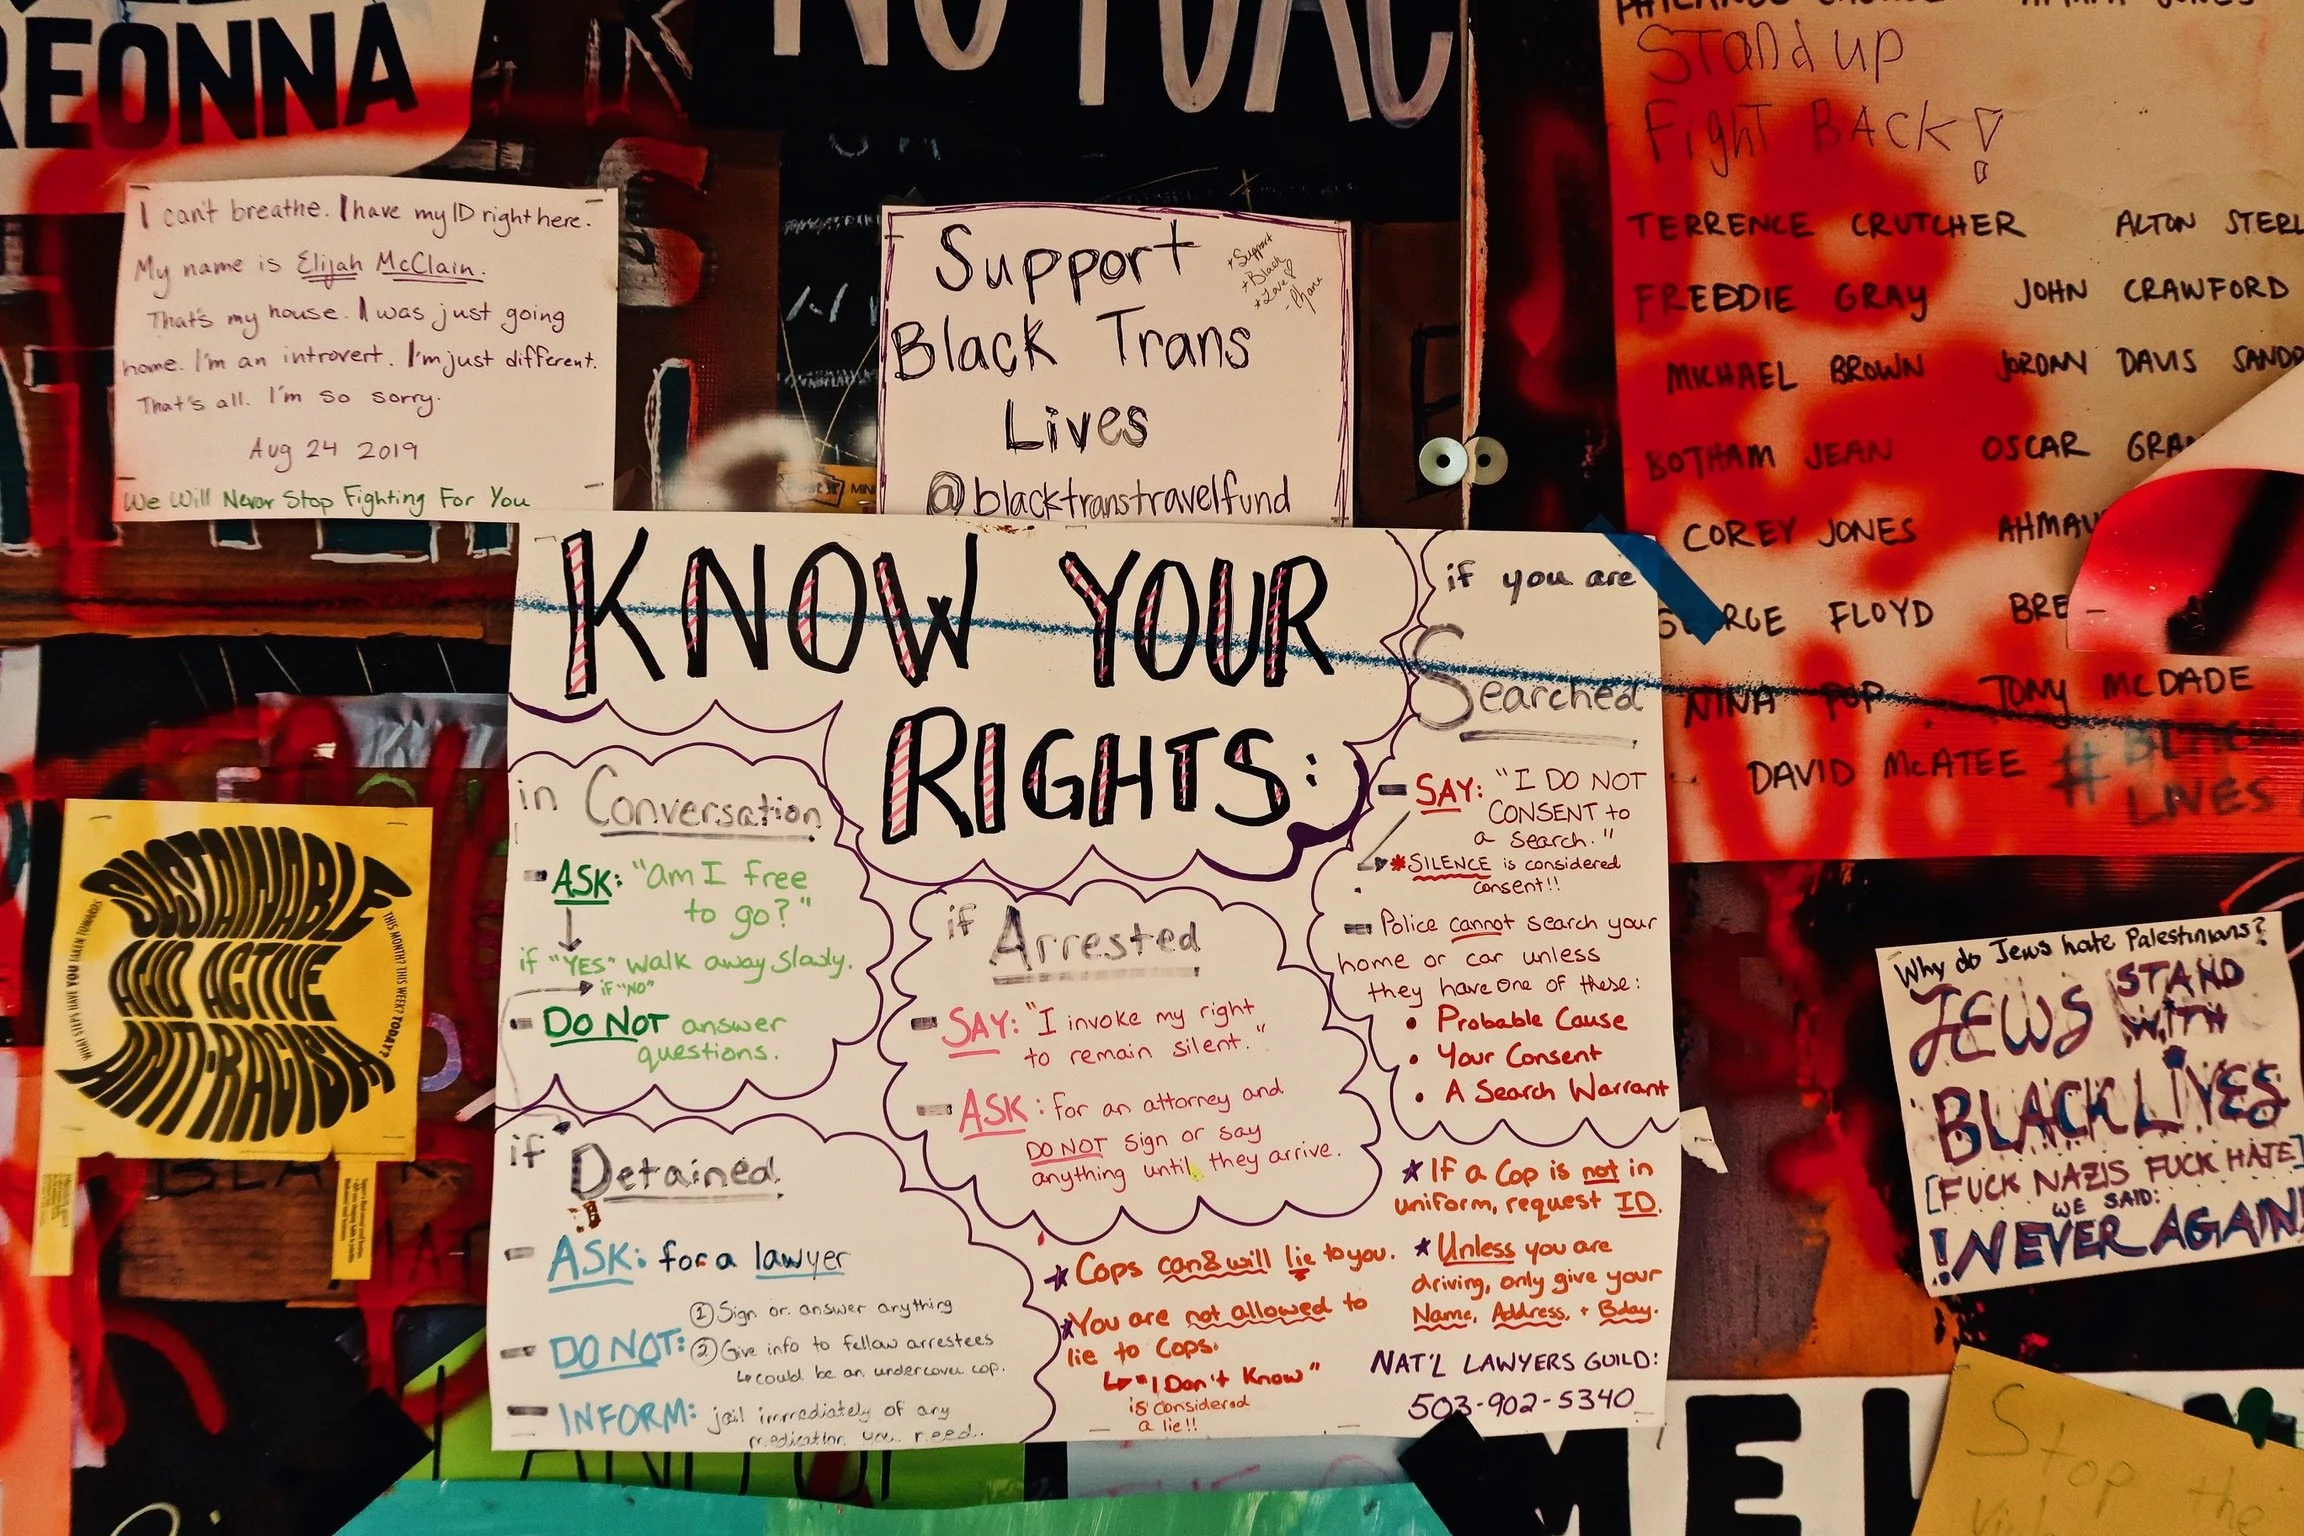 REONNA
I can't breathe. I have my ID right here.
My name is Elijah McClain.
That's my house. I was just going
home. I'm an introvert. I'm just different.
That's all. I'm so sorry.
Aug 24 2019
We Will Never Stop Fighting For You
Support
Black Trans
Lives
@blacktranstravelfund
+ Support
+ Black
+ Love
Stand up
Fight Back!
TERRENCE CRUTCHER ALTON STERL
FREDDIE GRAY JOHN CRAWFORD
MICHAEL BROWN JORDAN DAVIS SANDR
BOTHAM JEAN OSCAR GRAN
COREY JONES AHMAU
GEORGE FLOYD BRE
NINA POP TONY MCDADE
DAVID McATEE # BLACK
LIVES
KNOW YOUR
RIGHTS:
in Conversation
ASK: "am I free
to go?"
if "YES" walk away slowly.
if "NO"
DO NOT answer
questions.
if Detained
ASK: for a lawyer
DO NOT: ① Sign or answer anything
② Give info to fellow arrestees
↳ could be an undercover cop.
INFORM: jail immediately of any
medication you need.
if Arrested
SAY: "I invoke my right
to remain silent."
ASK: for an attorney and
DO NOT sign or say
anything until they arrive.
if you are
Searched
SAY: "I DO NOT
CONSENT to
a search."
* SILENCE is considered
consent!!
Police cannot search your
home or car unless
they have one of these:
• Probable Cause
• Your Consent
• A Search Warrant
★ Cops can & will lie to you.
★ You are not allowed to
lie to Cops.
↳ "I Don't Know"
is considered
a lie!!
★ If a Cop is not in
uniform, request ID.
★ Unless you are
driving, only give your
Name, Address, + Bday.
NAT'L LAWYERS GUILD:
503-902-5340
SUSTAINABLE
AND ACTIVE
ANTI-RACISM
WHAT STEPS HAVE YOU TAKEN TOWARDS
THIS MONTH? THIS WEEK? TODAY?
Why do Jews hate Palestinians?
JEWS STAND
WITH
BLACK LIVES
[FUCK NAZIS FUCK HATE]
WE SAID:
!NEVER AGAIN!
MEL
Stop the